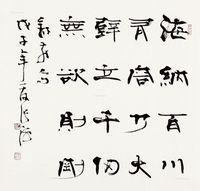 海納百川
有容乃大
壁立千仞
無欲則剛
戊子年夏